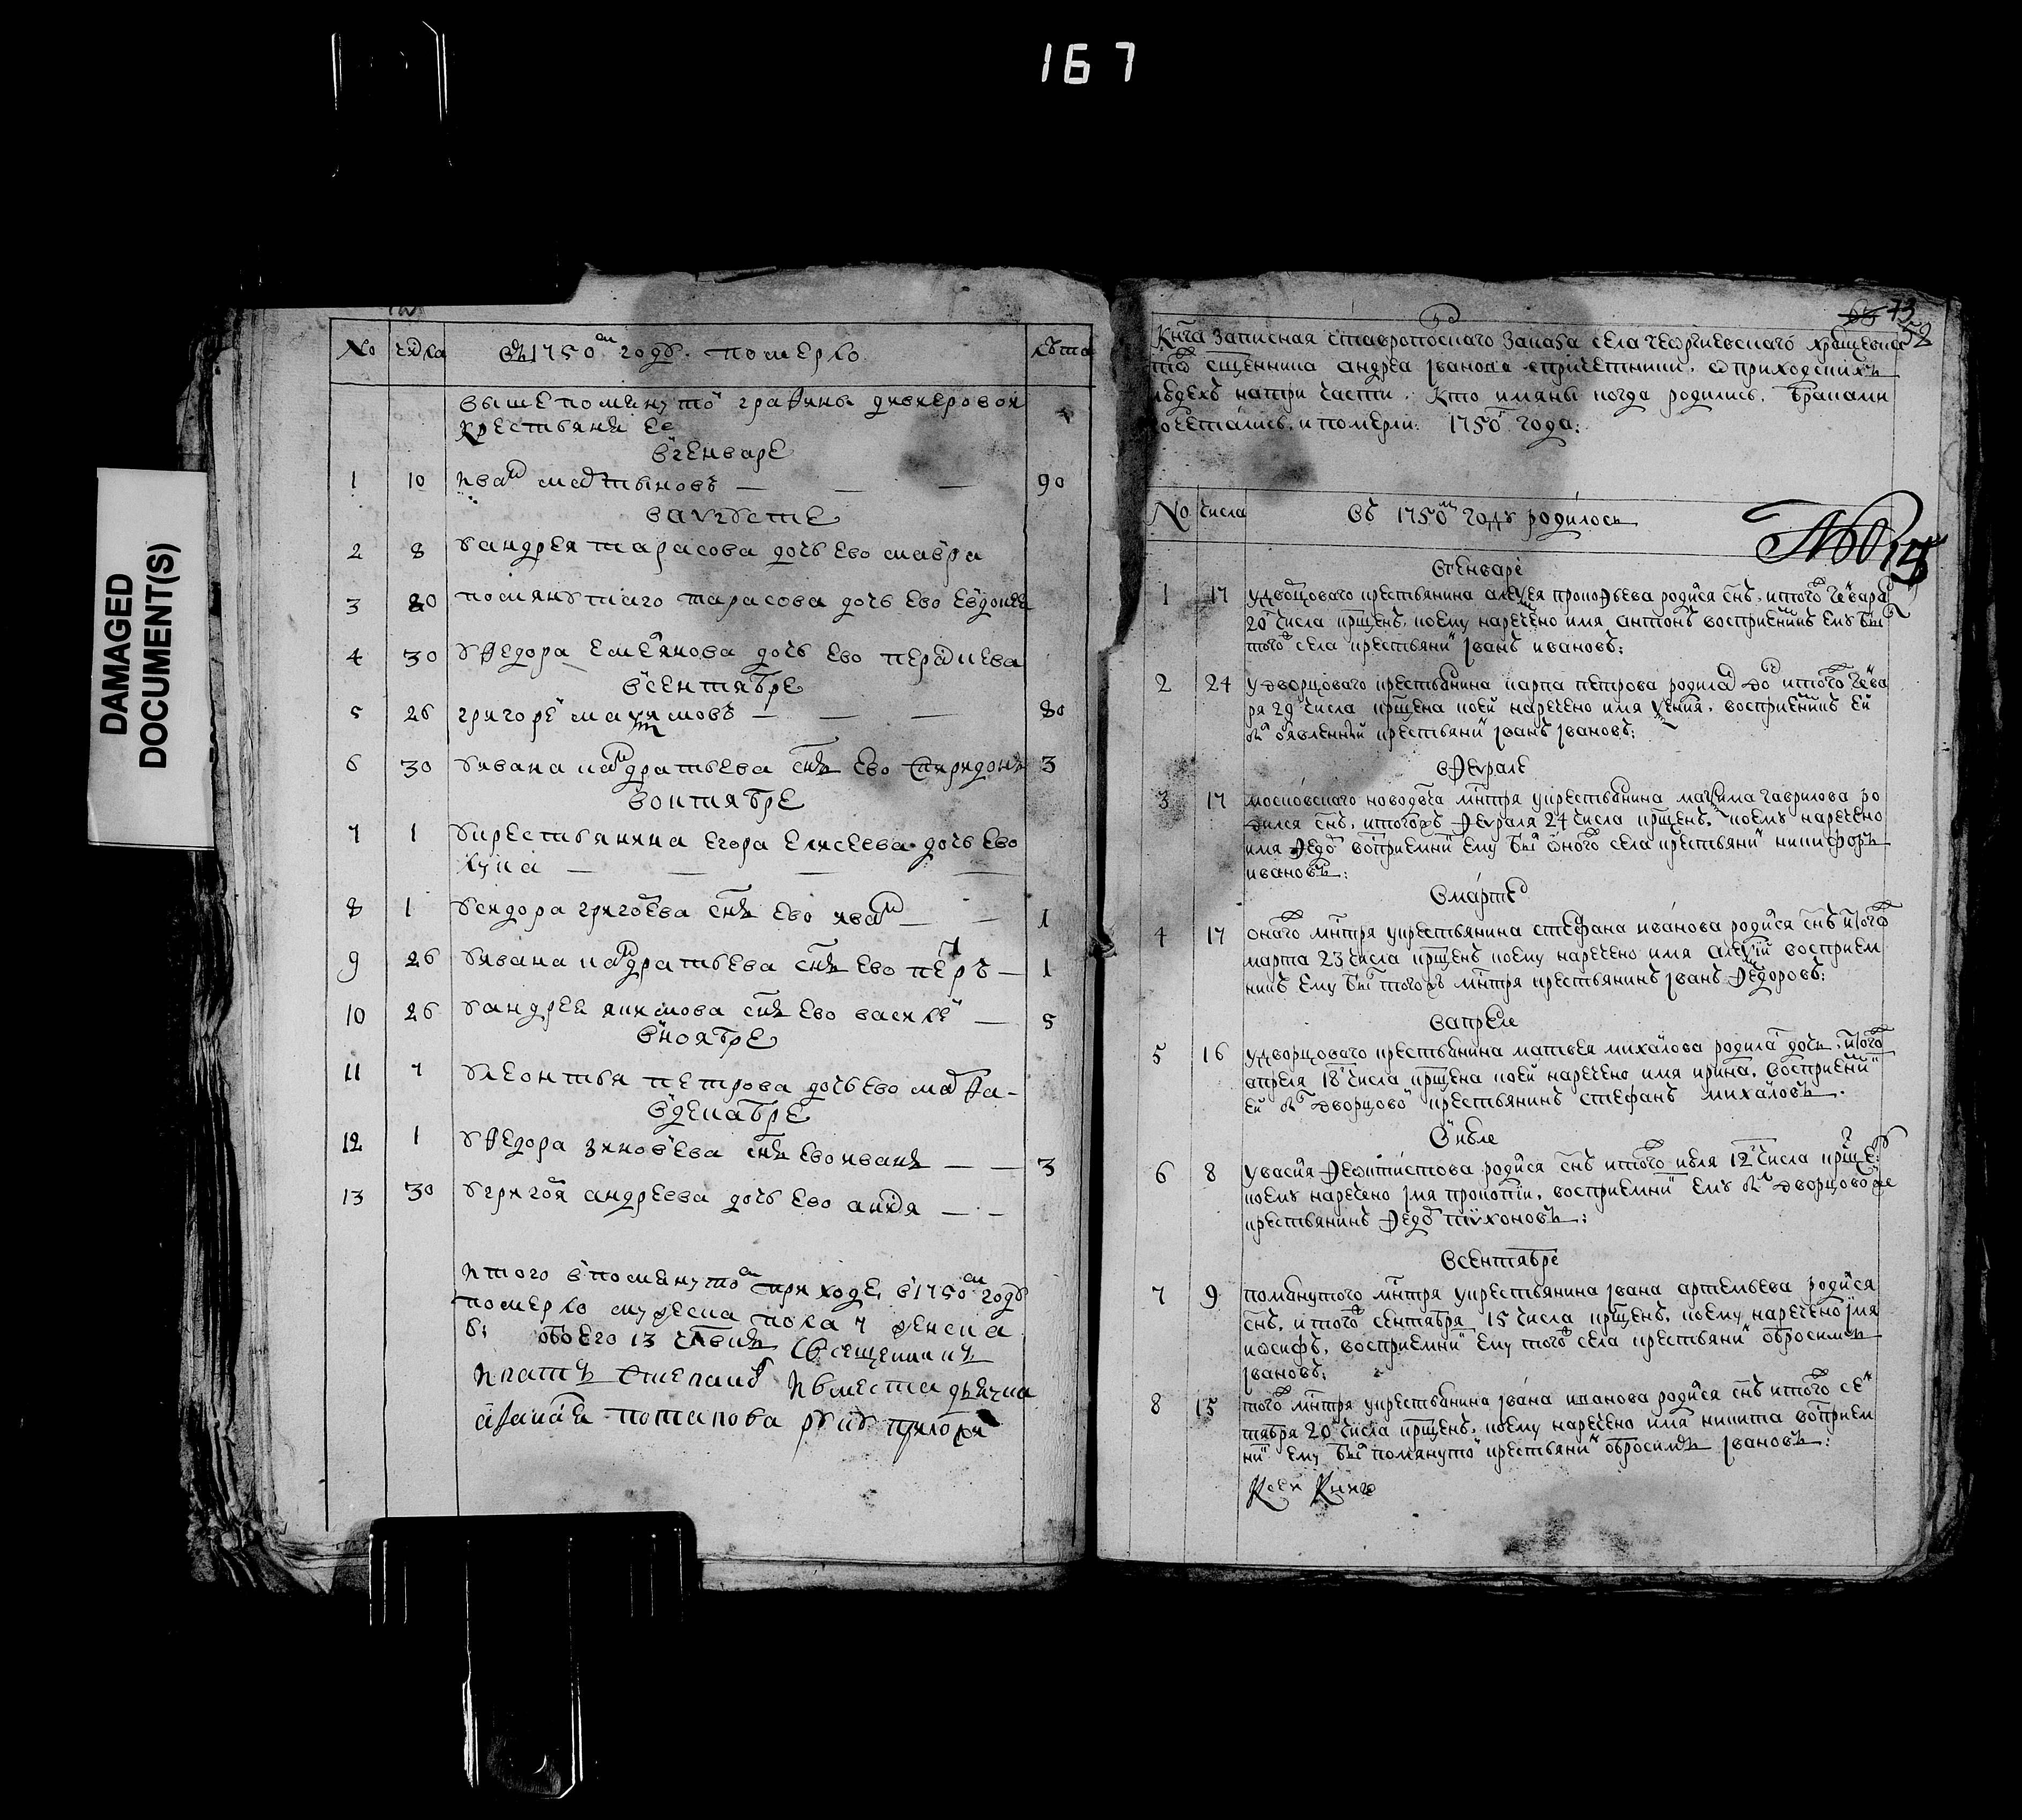 167
DAMAGED
DOCUMENT(S)
No числа въ 1750м году померло лѣта
вышепомянутои графины дивиеровои
крестьянъ ее
в генваре
1 10 иван мартыновъ — — — 90
в августе
2 8 у андрея тарасова дочь ево мавра
3 20 помянутаго тарасова дочь ево евдокея
4 30 у федора емелянова дочь ево
в сентябре
5 26 григореи маѯимовъ — — — 80
6 30 у ивана кандратьева снъ ево спиридонъ 3
в октябре
7 1 у крестьянина егора елисеева дочь ево
— — — —
8 1 у сидора григорева снъ ево иван — — 1
9 26 у ивана кандратьева снъ ево петръ — 1
10 26 у андрея якимова снъ ево василеи — 5
в ноябре
11 7 у леонтья петрова дочь ево марфа -
в декабре
12 1 у федора зиновева снъ ево иванъ — — 3
13 30 у григоря андреева дочь ево — -
итого в помянутом приходе в 1750м году
померло мужеска пола 7 женска
6: обоего 13 члвкъ
игнатъ степанов и вместа дьячка
потапова руку приложил
73
58
Книга записная ставропоского заказа села георгиевскаго
сщенника андрея иванова с причетники, о приходскихъ
людехъ на три части. кто имяны когда родились. браками
сочетались, и померли: 1750 года:
No числа въ 1750м году родилось
No 14
в генваре
1 17 у дворцоваго крестьянина алеѯея прокофьева родися снъ, и того генваря
20 числа крщенъ, коему наречено имя антонъ восприемникъ ему бы
того села крестьянин иванъ ивановъ:
2 24 у дворцоваго крестьянина карпа петрова родилас доч и того генва
ря 29 числа крщена коеи наречено имя ѯения, восприемникъ еи
был объявленныи крестьянин иванъ ивановъ:
в феврале
3 17 московскаго новодвча мнтря у крестьянина маѯима гаврилова ро
дился снъ, и тогожъ февраля 24 числа крщенъ, коему наречено
имя федор восприемник ему был оного села крестьянин никифоръ
ивановъ:
в марте
4 17 онаго мнтря у крестьянина стефана иванова родися снъ и того
марта 23 числа крщенъ коему наречено имя алеѯии восприем
никъ ему был тогожъ мнтря крестьянинъ иванъ федоровъ:
в апреле
5 16 у дворцоваго крестьянина матвея михаилова родилас дочь, и того
апреля 18 числа крщена коеи наречено имя ирина, восприемник
еи был дворцовои крестьянинъ стефанъ михаиловъ.
в июле
6 8 у васил феоктистова родися снъ и того июля 12 числа крще:
коему наречено имя прокопии, восприемник ему был дворцовои же
крестьянинъ федор тихоновъ:
в сентябре
7 9 помянутого мнтря у крестьянина ивана артемьева родися
снъ, и того сентября 15 числа крщенъ, коему наречено имя
иосифъ, восприемник ему того села крестьянин обросимъ
ивановъ:
8 15 того мнтря у крестьянина ивана иванова родися снъ и того сен
тября 20 числа крщенъ, коему наречено имя никита восприем
ник ему был помянуто крестьянин обросимъ ивановъ:
К сеи книге